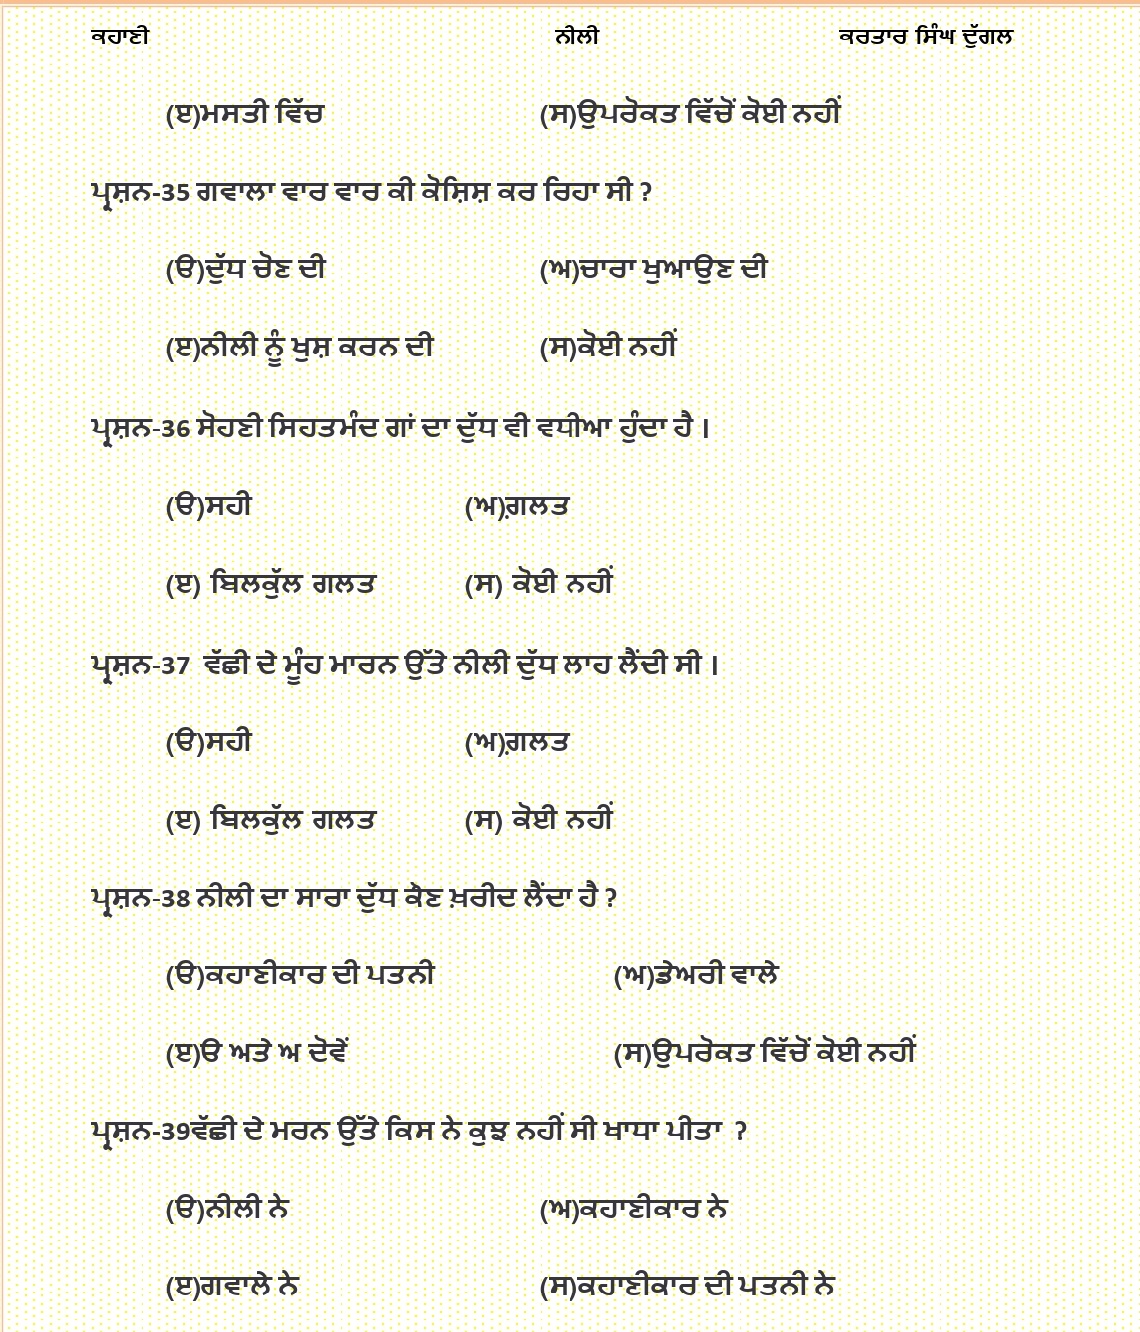 ਕਹਾਣੀ ਨੀਲੀ ਕਰਤਾਰ ਸਿੰਘ ਦੁੱਗਲ
(ੲ)ਮਸਤੀ ਵਿੱਚ (ਸ)ਉਪਰੋਕਤ ਵਿੱਚੋਂ ਕੋਈ ਨਹੀਂ
ਪ੍ਰਸ਼ਨ-35 ਗਵਾਲਾ ਵਾਰ ਵਾਰ ਕੀ ਕੋਸ਼ਿਸ਼ ਕਰ ਰਿਹਾ ਸੀ ?
(ੳ)ਦੁੱਧ ਚੋਣ ਦੀ (ਅ)ਚਾਰਾ ਖੁਆਉਣ ਦੀ
(ੲ)ਨੀਲੀ ਨੂੰ ਖੁਸ਼ ਕਰਨ ਦੀ (ਸ)ਕੋਈ ਨਹੀਂ
ਪ੍ਰਸ਼ਨ-36 ਸੋਹਣੀ ਸਿਹਤਮੰਦ ਗਾਂ ਦਾ ਦੁੱਧ ਵੀ ਵਧੀਆ ਹੁੰਦਾ ਹੈ ।
(ੳ)ਸਹੀ (ਅ)ਗ਼ਲਤ
(ੲ) ਬਿਲਕੁੱਲ ਗਲਤ (ਸ) ਕੋਈ ਨਹੀਂ
ਪ੍ਰਸ਼ਨ-37 ਵੱਛੀ ਦੇ ਮੂੰਹ ਮਾਰਨ ਉੱਤੇ ਨੀਲੀ ਦੁੱਧ ਲਾਹ ਲੈਂਦੀ ਸੀ ।
(ੳ)ਸਹੀ (ਅ)ਗ਼ਲਤ
(ੲ) ਬਿਲਕੁੱਲ ਗਲਤ (ਸ) ਕੋਈ ਨਹੀਂ
ਪ੍ਰਸ਼ਨ-38 ਨੀਲੀ ਦਾ ਸਾਰਾ ਦੁੱਧ ਕੌਣ ਖ਼ਰੀਦ ਲੈਂਦਾ ਹੈ ?
(ੳ)ਕਹਾਣੀਕਾਰ ਦੀ ਪਤਨੀ (ਅ)ਡੇਅਰੀ ਵਾਲੇ
(ੲ)ੳ ਅਤੇ ਅ ਦੋਵੇਂ (ਸ)ਉਪਰੋਕਤ ਵਿੱਚੋਂ ਕੋਈ ਨਹੀਂ
ਪ੍ਰਸ਼ਨ-39ਵੱਛੀ ਦੇ ਮਰਨ ਉੱਤੇ ਕਿਸ ਨੇ ਕੁਝ ਨਹੀਂ ਸੀ ਖਾਧਾ ਪੀਤਾ ?
(ੳ)ਨੀਲੀ ਨੇ (ਅ)ਕਹਾਣੀਕਾਰ ਨੇ
(ੲ)ਗਵਾਲੇ ਨੇ (ਸ)ਕਹਾਣੀਕਾਰ ਦੀ ਪਤਨੀ ਨੇ